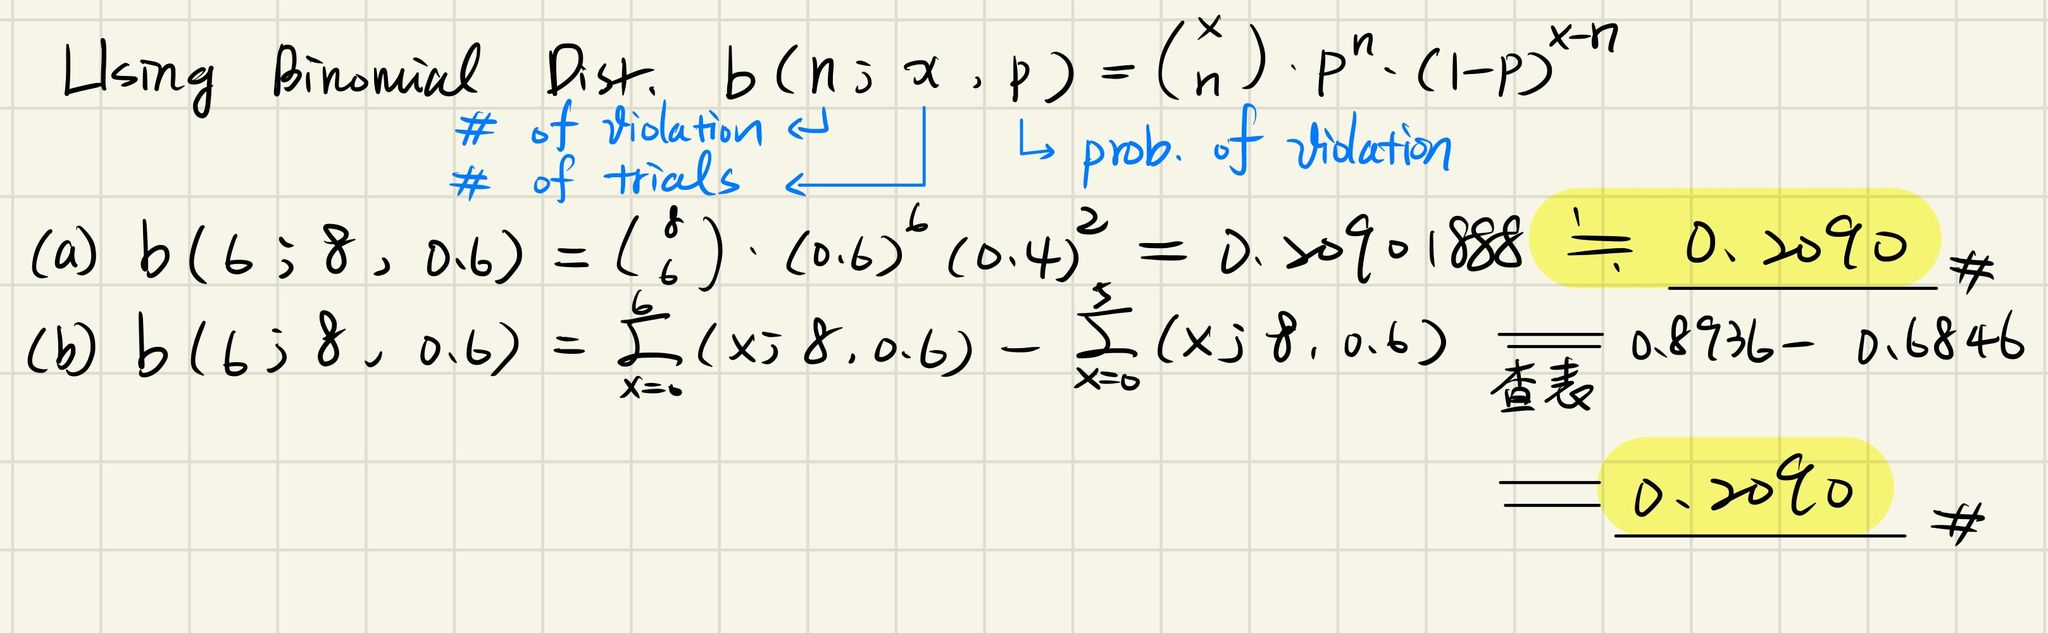 Using Binomial Dist. b(n; x, p) = (x n) · p^n · (1-p)^(x-n)
# of violation ↵ ↳ prob. of violation
# of trials ←
(a) b(6; 8, 0.6) = (8 6) · (0.6)^6 (0.4)^2 = 0.20901888 ≒ 0.2090 #
(b) b(6; 8, 0.6) = ∑_{x=0}^{6} (x; 8, 0.6) - ∑_{x=0}^{5} (x; 8, 0.6) = 查表 0.8936 - 0.6846
= 0.2090 #